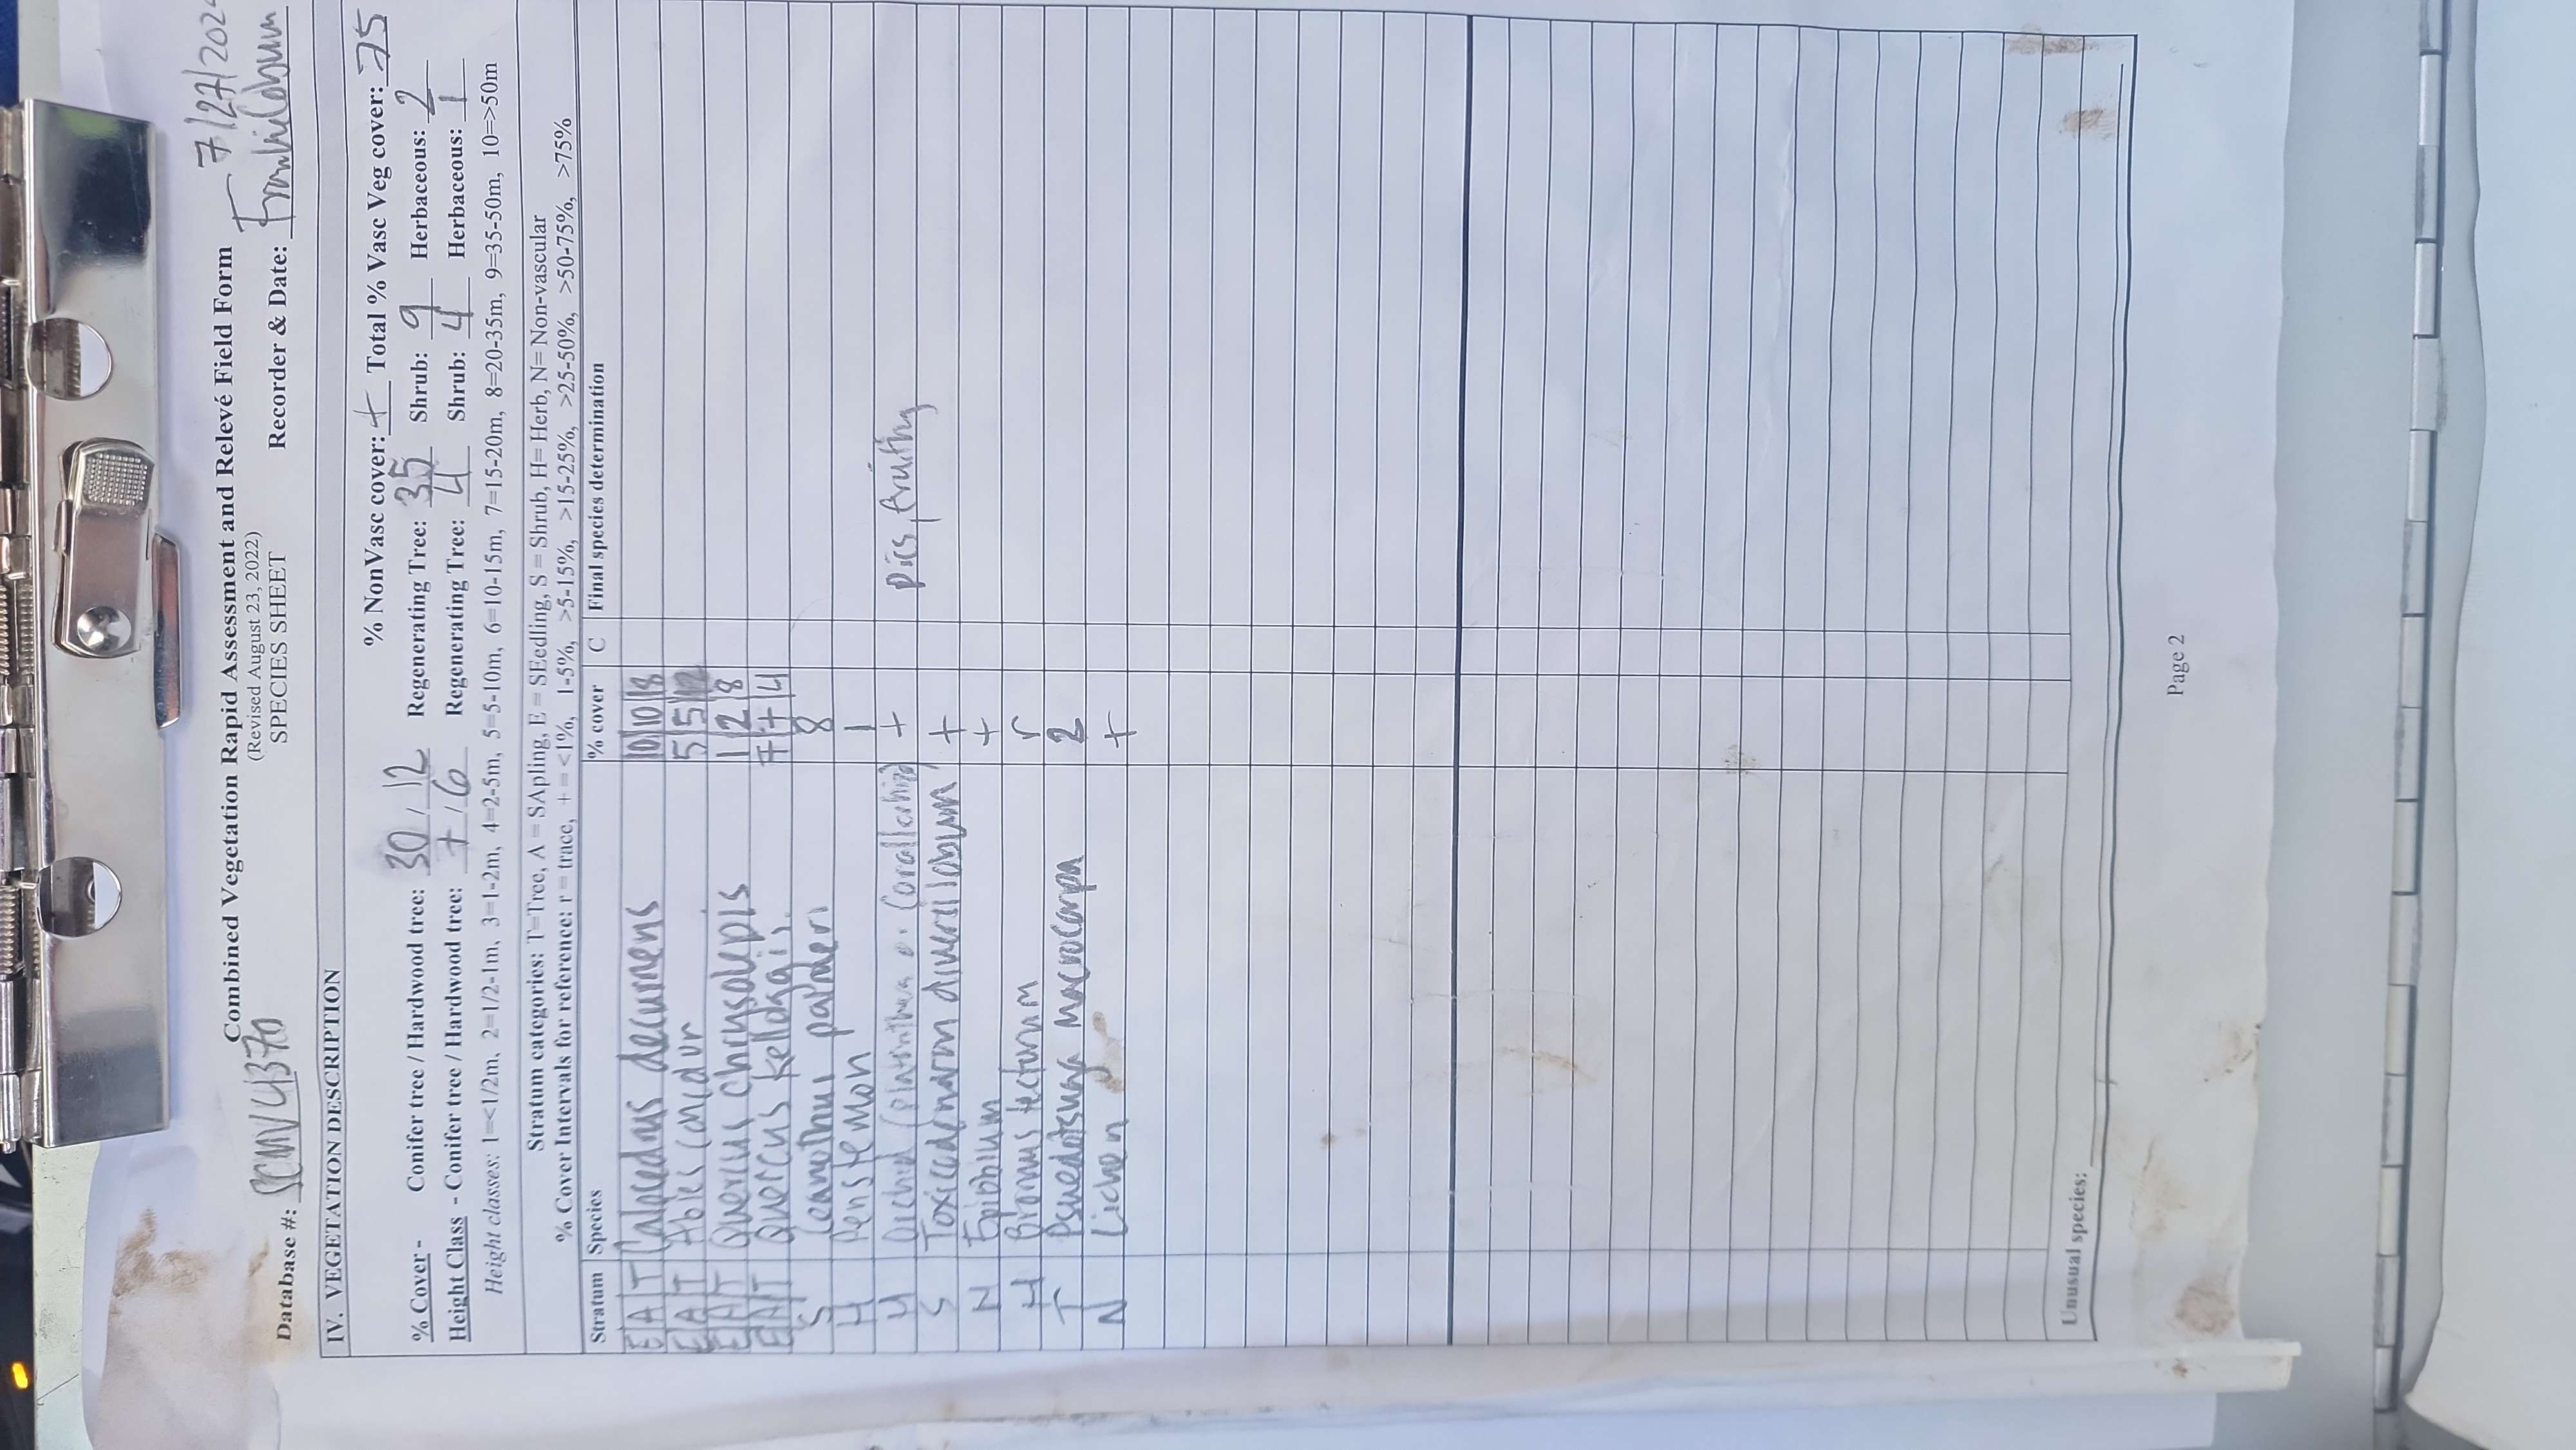 Combined Vegetation Rapid Assessment and Relevé Field Form
(Revised August 23, 2022)
7/27/202
SPECIES SHEET
Database #: SCMV4370 Recorder & Date: Frankie Coburn
IV. VEGETATION DESCRIPTION
% NonVasc cover: + Total % Vasc Veg cover: 75
% Cover - Conifer tree / Hardwood tree: 30 / 12 Regenerating Tree: 35 Shrub: 9 Herbaceous: 2
Height Class - Conifer tree / Hardwood tree: 7 / 6 Regenerating Tree: 4 Shrub: 4 Herbaceous: 1
Height classes: 1=<1/2m, 2=1/2-1m, 3=1-2m, 4=2-5m, 5=5-10m, 6=10-15m, 7=15-20m, 8=20-35m, 9=35-50m, 10=>50m
Stratum categories: T=Tree, A = SApling, E = SEedling, S = Shrub, H= Herb, N= Non-vascular
% Cover Intervals for reference: r = trace, + = <1%, 1-5%, >5-15%, >15-25%, >25-50%, >50-75%, >75%
Stratum Species % cover C Final species determination
E|A|T Calocedrus decurrens 10|10|18
E|A|T Abies concolor 5|5|12
E|A|T Quercus chrysolepis 1|2|8
E|A|T Quercus kelloggii +|+|4
S Ceanothus palmeri 8
H Penstemon 1
H Orchid (platanthera or Corallorhiza) + pics, fruiting
S Toxicodendron diversilobum +
H Epilobium +
H Bromus tectorum r
T Psuedotsuga macrocarpa 2
N Lichen +
Unusual species:
Page 2